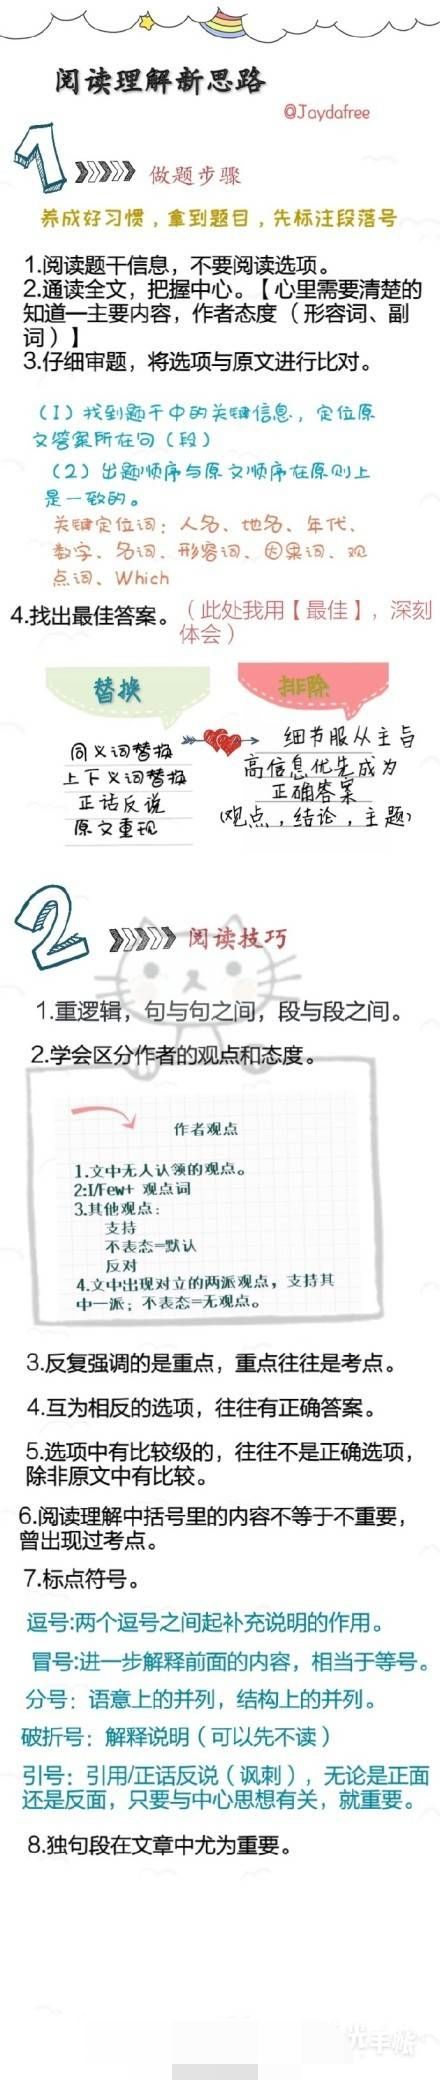 阅读理解新思路
@Jaydafree
1
做题步骤
养成好习惯，拿到题目，先标注段落号
1.阅读题干信息，不要阅读选项。
2.通读全文，把握中心。【心里需要清楚的
知道—主要内容，作者态度（形容词、副
词）】
3.仔细审题，将选项与原文进行比对。
（1）找到题干中的关键信息，定位原
文答案所在句（段）
（2）出题顺序与原文顺序在原则上
是一致的。
关键定位词：人名、地名、年代、
数字、名词、形容词、因果词、观
点词、Which
4.找出最佳答案。（此处我用【最佳】，深刻
体会）
替换
同义词替换
上下义词替换
正话反说
原文重现
排除
细节服从主旨
高信息优先成为
正确答案
（观点，结论，主题）
2
阅读技巧
1.重逻辑，句与句之间，段与段之间。
2.学会区分作者的观点和态度。
作者观点
1.文中无人认领的观点。
2:I/Few+ 观点词
3.其他观点：
支持
不表态=默认
反对
4.文中出现对立的两派观点，支持其
中一派；不表态=无观点。
3.反复强调的是重点，重点往往是考点。
4.互为相反的选项，往往有正确答案。
5.选项中有比较级的，往往不是正确选项，
除非原文中有比较。
6.阅读理解中括号里的内容不等于不重要，
曾出现过考点。
7.标点符号。
逗号:两个逗号之间起补充说明的作用。
冒号:进一步解释前面的内容，相当于等号。
分号：语意上的并列，结构上的并列。
破折号：解释说明（可以先不读）
引号：引用/正话反说（讽刺），无论是正面
还是反面，只要与中心思想有关，就重要。
8.独句段在文章中尤为重要。